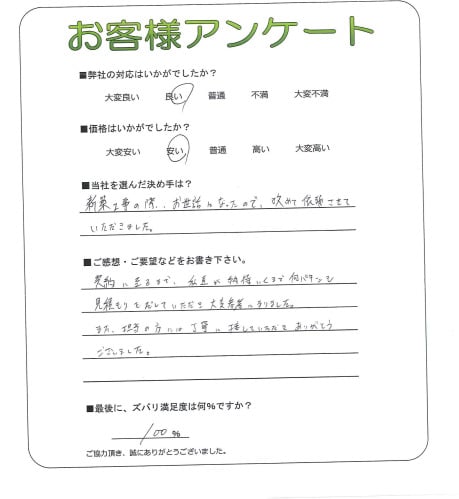 お客様アンケート
■弊社の対応はいかがでしたか?
大変良い 良い 普通 不満 大変不満
■価格はいかがでしたか?
大変安い 安い 普通 高い 大変高い
■当社を選んだ決め手は?
新築工事の際、お世話になったので、改めて依頼させて
いただきました。
■ご感想・ご要望などをお書き下さい。
契約に至るまで、私共が納得いくまで何パターンも
見積もりを出していただき大変参考になりました。
また、担当の方には丁寧に接していただきありがとう
ございました。
■最後に、ズバリ満足度は何%ですか?
100 %
ご協力頂き、誠にありがとうございました。